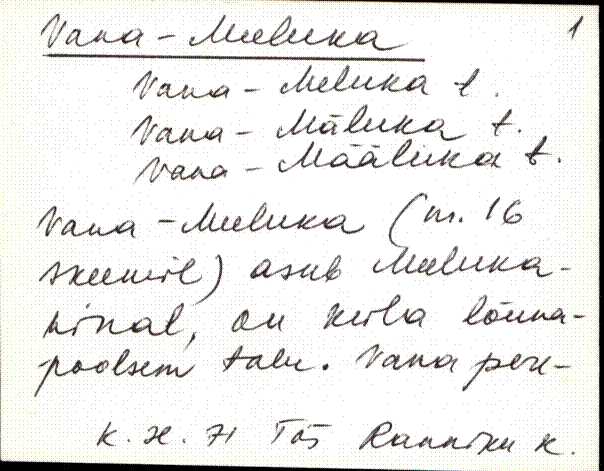 Vana-Meeluka 1
Vana-Meluka t.
Vana-Mäluka t.
Vana-Määluka t.
Vana-Meeluka (nr. 16
skeemil) asub Meeluka-
ninal, on küla lõuna-
poolsem talu. Vana pere-
K. H. 71 Tõs Ranniku k.